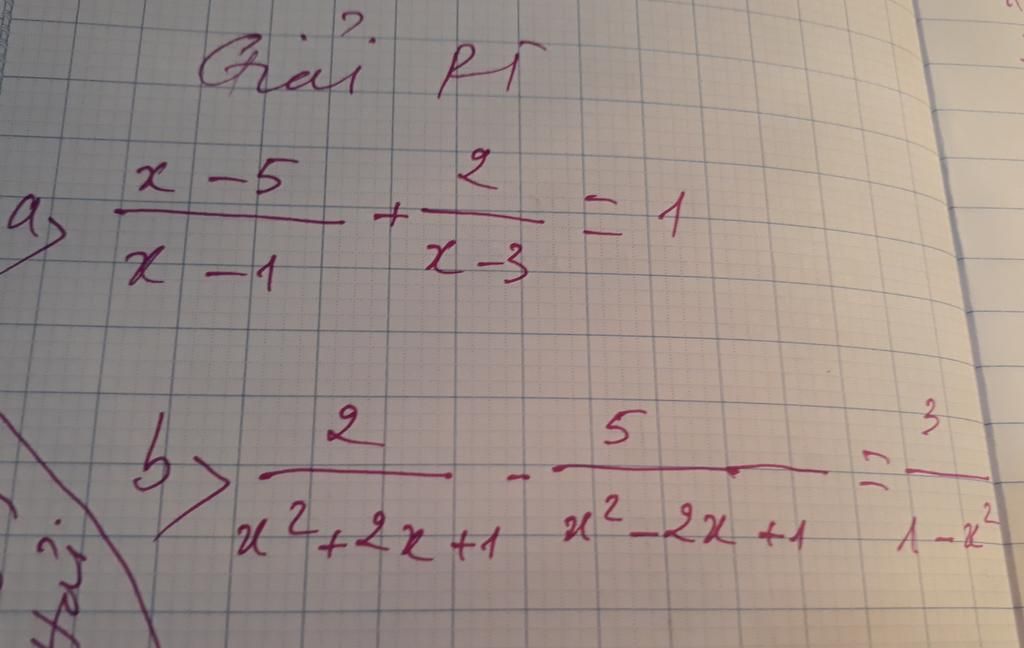 Giải PT
a> \frac{x - 5}{x - 1} + \frac{2}{x - 3} = 1
b> \frac{2}{x^2 + 2x + 1} - \frac{5}{x^2 - 2x + 1} = \frac{3}{1 - x^2}